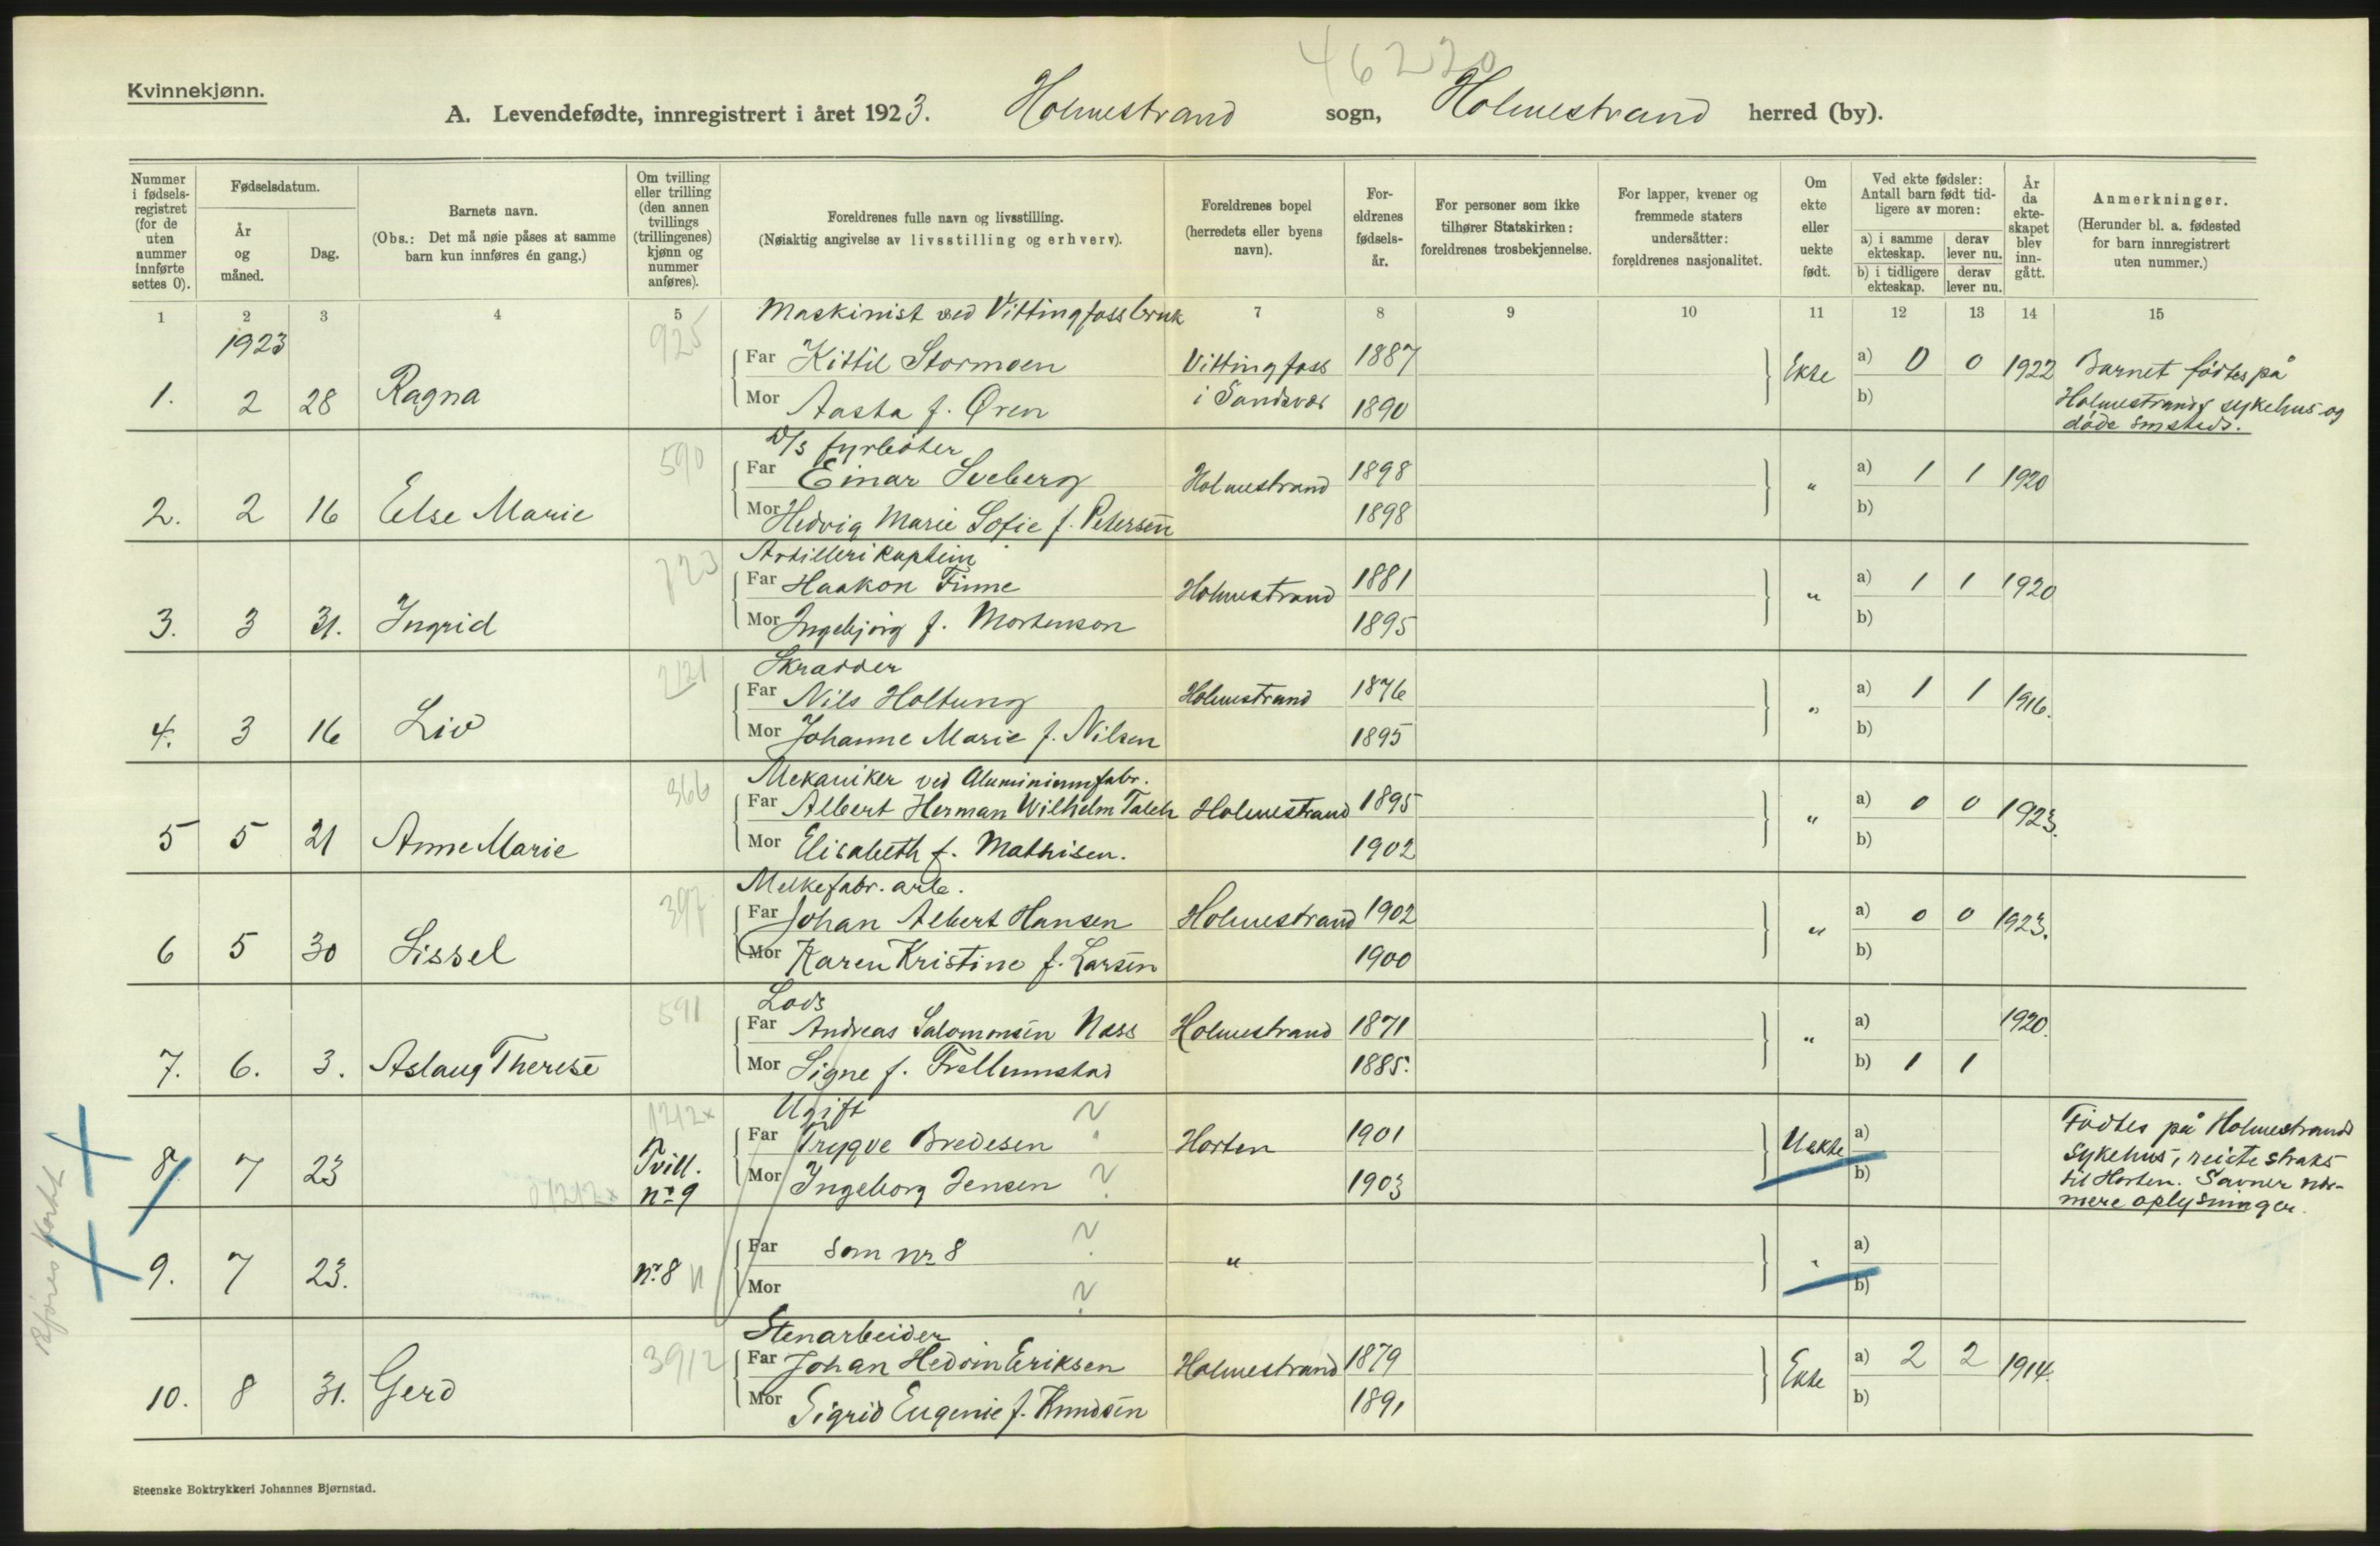 46220
Kvinnekjønn.
A. Levendefødte, innregistrert i året 1923. Holmestrand sogn, Holmestrand herred (by).
Nummer i fødsels- registret (for de uten nummer innførte settes 0).
Fødselsdatum.
År og måned.
Dag.
Barnets navn.
(Obs.: Det må nøie påses at samme barn kun innføres én gang.)
Om tvilling eller trilling (den annen tvillings (trillingenes) kjønn og nummer anføres).
Foreldrenes fulle navn og livsstilling.
(Nøiaktig angivelse av livsstilling og erhverv).
Foreldrenes bopel (herredets eller byens navn).
For- eldrenes fødsels- år.
For personer som ikke tilhører Statskirken: foreldrenes trosbekjennelse.
For lapper, kvener og fremmede staters undersåtter: foreldrenes nasjonalitet.
Om ekte eller uekte født.
Ved ekte fødsler: Antall barn født tid- ligere av moren:
a) i samme ekteskap. derav lever nu.
b) i tidligere ekteskap. derav lever nu.
År da ekte- skapet blev inn- gått.
Anmerkninger.
(Herunder bl. a. fødested for barn innregistrert uten nummer.)
1 2 3 4 5 7 8 9 10 11 12 13 14 15
1923
925 Maskinist ved Vittingfoss bruk
Far Kittil Stormoen Vittingfoss 1887 Ekte a) 0 0 1922 Barnet fødtes på
1. 2 28 Ragna Mor Aasta f. Øren i Sandsvær 1890 b) Holmestrands sykehus og
døde smsteds.
590 D/S fyrbøter
Far Einar Sveberg Holmestrand 1898 " a) 1 1 1920
2. 2 16 Else Marie Mor Hedvig Marie Sofie f. Petersen 1898 b)
723 Artillerikaptein
Far Haakon Finne Holmestrand 1881 " a) 1 1 1920
3. 3 31. Ingrid Mor Ingebjørg f. Mortenson 1895 b)
Skrædder
Far Nils Holtung Holmestrand 1876 " a) 1 1 1916.
4. 3 16 Liv Mor Johanne Marie f. Nilsen 1895 b)
366 Mekaniker ved Aluminiumfabr.
Far Albert Herman Wilhelm Holmestrand 1895 " a) 0 0 1923.
5 5 21 Anne Marie Mor Elisabeth f. Mathisen. 1902 b)
397 Melkefabr. arb.
Far Johan Albert Hansen Holmestrand 1902 " a) 0 0 1923.
6 5 30 Sissel Mor Karen Kristine f. Larsen 1900 b)
591 Lods
Far Andreas Salomonsen Næss Holmestrand 1871 " a) 1920.
7. 6. 3. Aslaug Therese Mor Signe f. 1885. b) 1 1
1212x Ugift ?
Far Trygve Bredesen Horten 1901 Uekte a) Fødtes på Holmestrands
8 7 23 Tvill. nr 9 Mor Ingeborg Jensen ? 1903 b) sykehus, reiste straks
til Horten. Savner nær-
mere oplysninger.
Far som nr 8 ? " " a)
9. 7 23. nr. 8 Mor ? b)
3912 Stenarbeider
Far Johan Hedvin Eriksen Holmestrand 1879 Ekte a) 2 2 1914.
10. 8 31. Gerd Mor Sigrid Eugenie f. Knudsen 1891 b)
Steenske Boktrykkeri Johannes Bjørnstad.